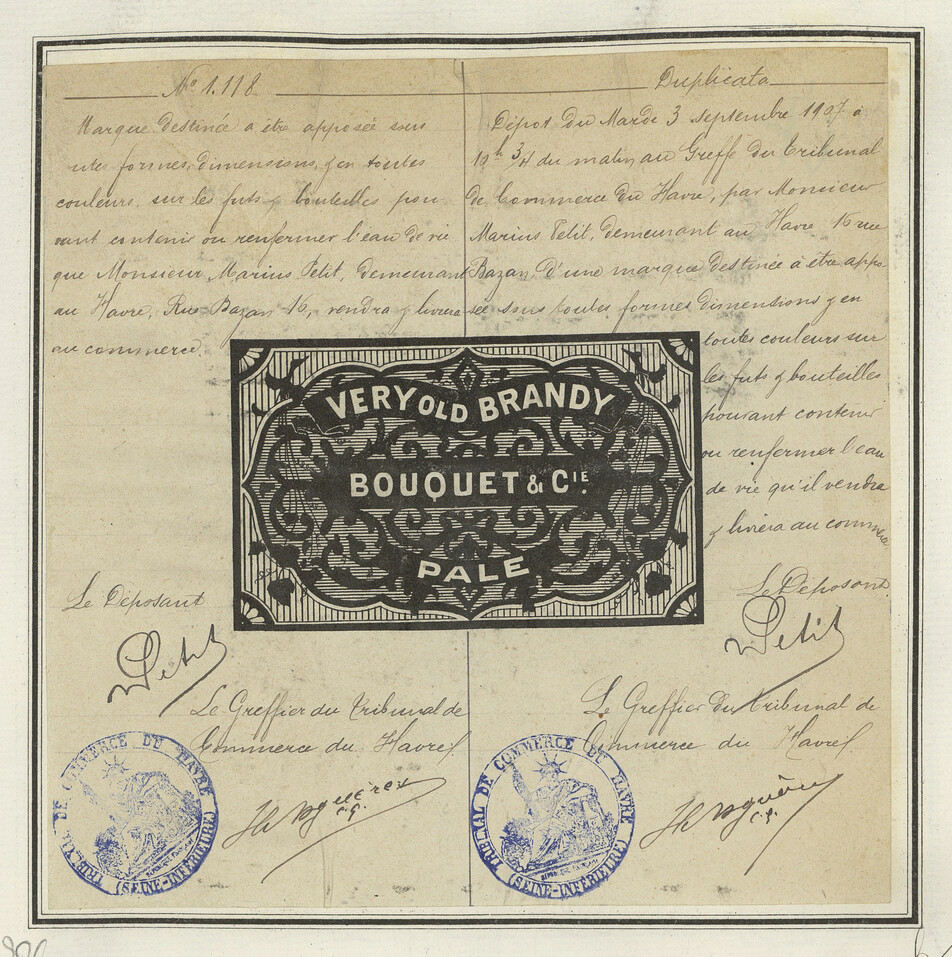 No 1.118
Marque destinée a être apposée sous
utes formes, dimensions, & en toutes
couleurs, sur les futs & bouteilles pou
vant contenir ou renfermer l'eau de vie
que Monsieur Marius Petit, demeurant
au Havre, Rue Bazan 16, vendra & livrera
au commerce.
Le Déposant
Petit
Le Greffier du Tribunal de
Commerce du Havre
C.G.
TRIBUNAL DE COMMERCE DU HAVRE
(SEINE-INFÉRIEURE)
VERY OLD BRANDY
BOUQUET & CIE.
PALE
Duplicata
Dépot du Mardi 3 septembre 1907 à
10h 3/4 du matin au Greffe du Tribunal
de Commerce du Havre, par Monsieur
Marius Petit, demeurant au Havre 16 rue
Bazan, d'une marque destinée à être appo
sée sous toutes formes dimensions & en
toutes couleurs sur
les futs & bouteilles
pouvant contenir
ou renfermer l'eau
de vie qu'il vendra
& livrera au commerce
Le Déposant
Petit
Le Greffier du Tribunal de
Commerce du Havre
C.G.
TRIBUNAL DE COMMERCE DU HAVRE
(SEINE-INFÉRIEURE)